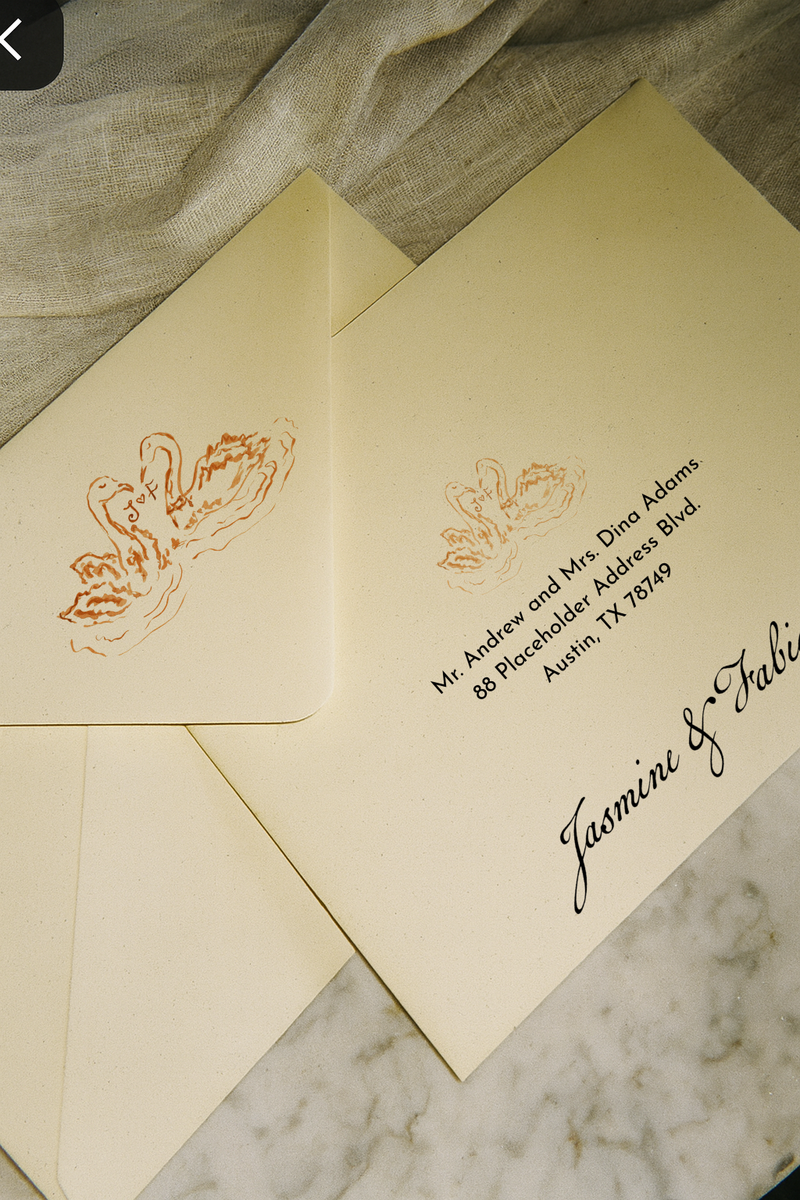 J♡F
J♡F
Mr. Andrew and Mrs. Dina Adams
88 Placeholder Address Blvd.
Austin, TX 78749
Jasmine & Fabi